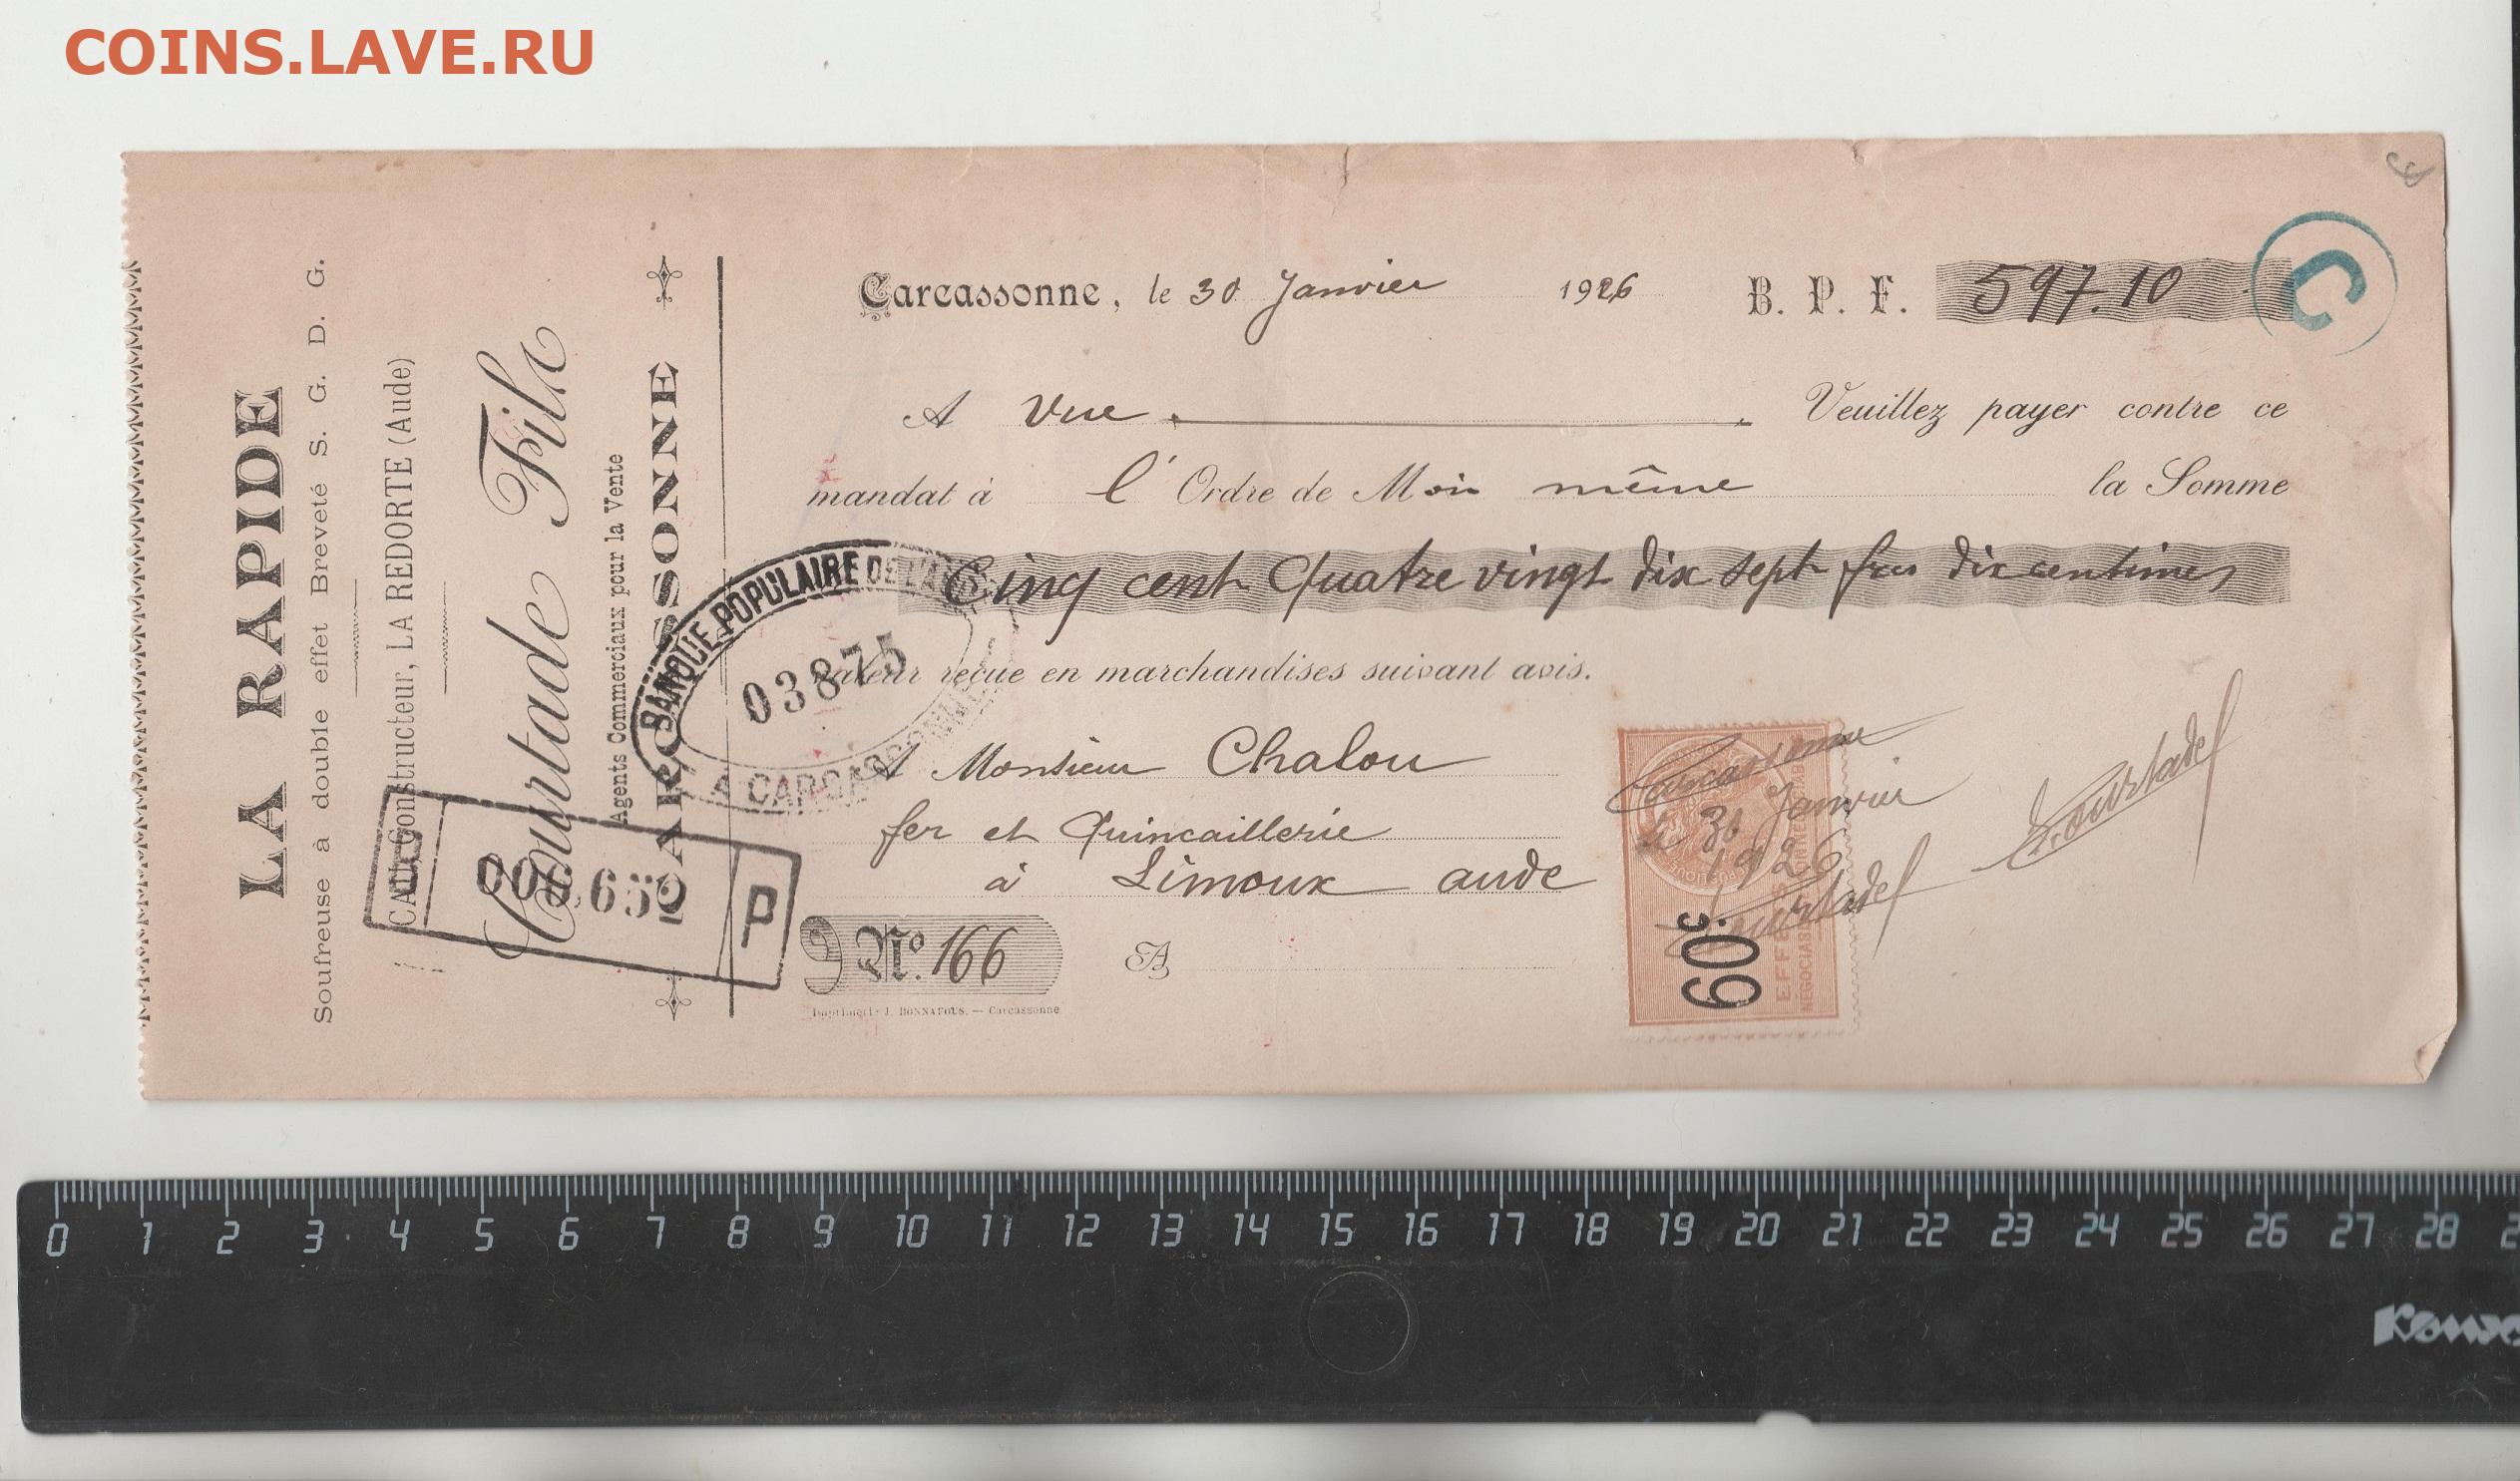 COINS.LAVE.RU
LA RAPIDE
Soufreuse à double effet Breveté S. G. D. G.
Constructeur, LA REDORTE (Aude)
Courtade Fils
Agents Commerciaux pour la Vente
CARCASSONNE
Carcassonne, le 30 Janvier 1926 B. P. F. 597.10
C
A vue Veuillez payer contre ce
mandat à l'Ordre de Moi même la Somme
Cinq cent Quatre vingt dix sept frcs dix centimes
valeur reçue en marchandises suivant avis.
BANQUE POPULAIRE DE L'AUDE
03875
A CARCASSONNE
A Monsieur Chalou
fer et Quincaillerie
à Limoux aude
P
No. 166 A
J. BONNAFOUS. — Carcassonne
Carcassonne
le 31 Janvier
1926
Courtade
Courtade
60c
EFFETS
0 1 2 3 4 5 6 7 8 9 10 11 12 13 14 15 16 17 18 19 20 21 22 23 24 25 26 27 28